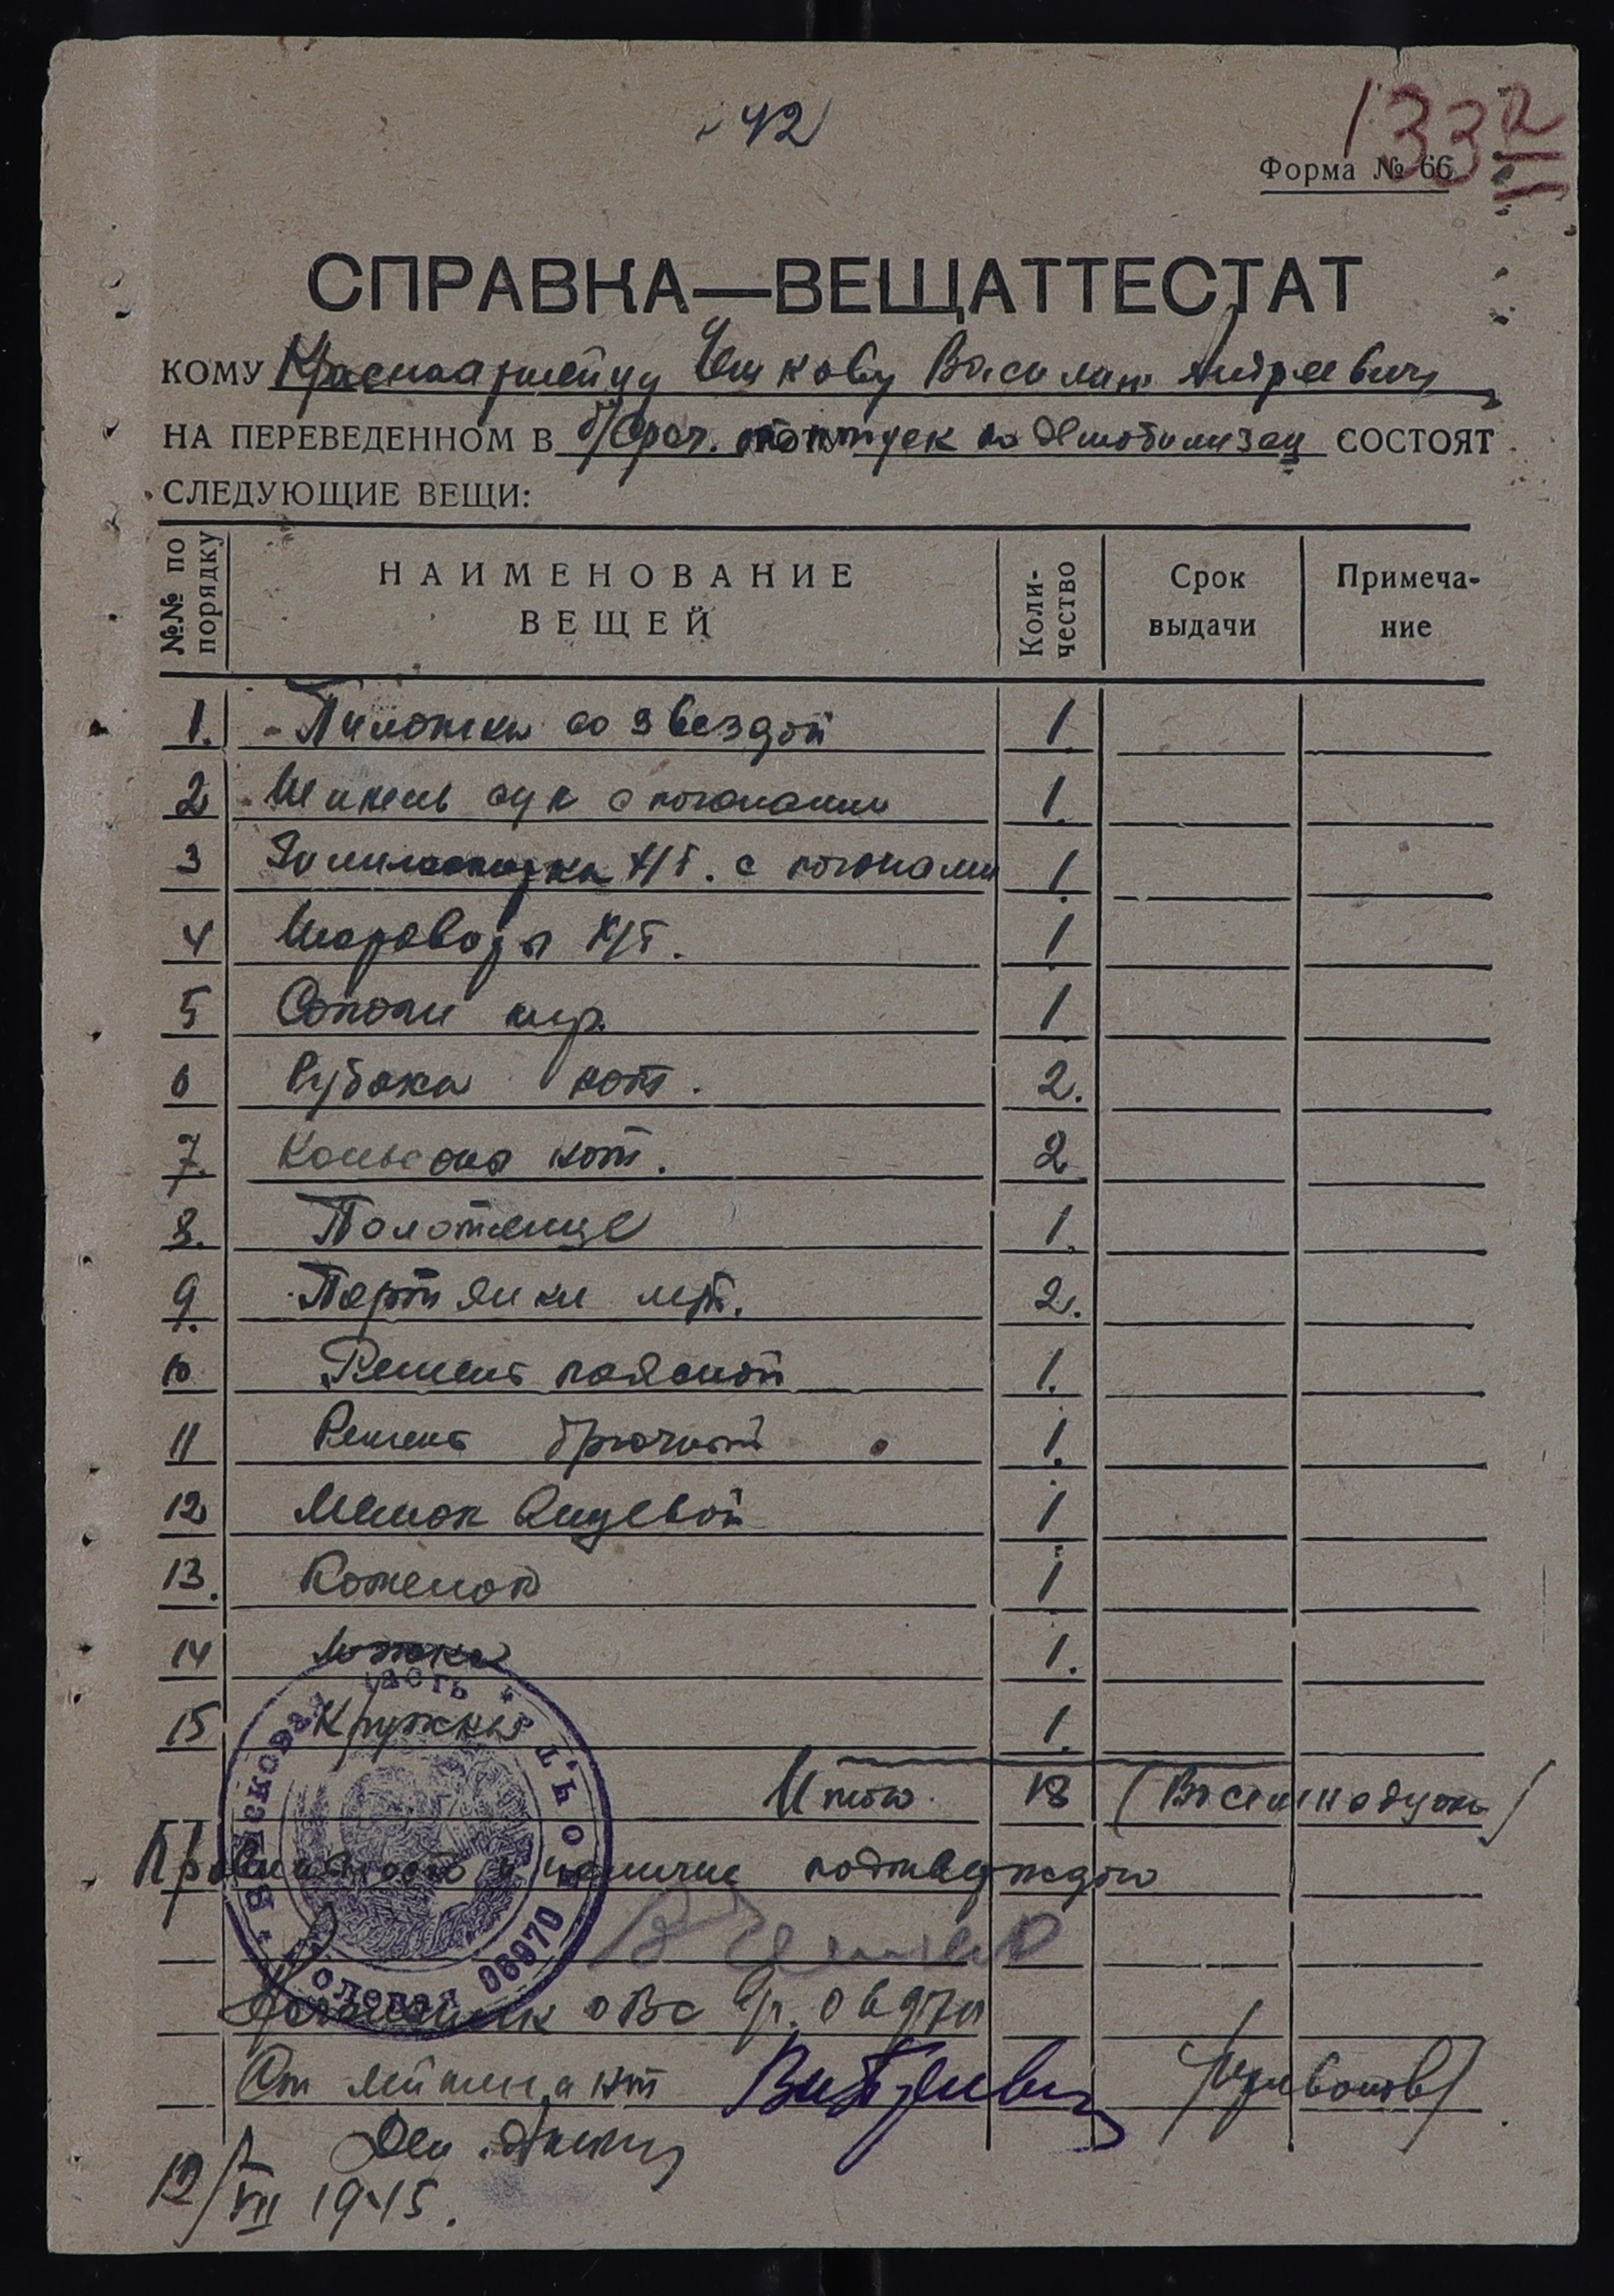 42
133
Форма № 66
СПРАВКА—ВЕЩАТТЕСТАТ
КОМУ Красноармейцу Василию Андреевичу
НА ПЕРЕВЕДЕННОМ В б/сроч. отпуск по Демобилизац СОСТОЯТ
СЛЕДУЮЩИЕ ВЕЩИ:
№№ по порядку НАИМЕНОВАНИЕ ВЕЩЕЙ Коли-чество Срок выдачи Примеча-ние
1. Пилотка со звездой 1
2 Шинель сук с погонами 1.
3 х/б. с погонами 1.
4 Шаровары х/б. 1
5 Сапоги кир. 1
6 Рубаха нат. 2.
7. Кальсоны нат. 2
8. Полотенце 1.
9. Портянки лет. 2.
10 Ремень поясной 1.
11 Ремень брючный 1.
12 Мешок вещевой 1
13. Котелок 1
14 Ложка 1.
15 Кружка 1.
Итого. 18 (Восемнадцать)
Правильность и наличие подтверждаю
Войсковая часть
Полевая 06970
Начальник ОВС 06970
Ст лейтенант
12/VII 1945.